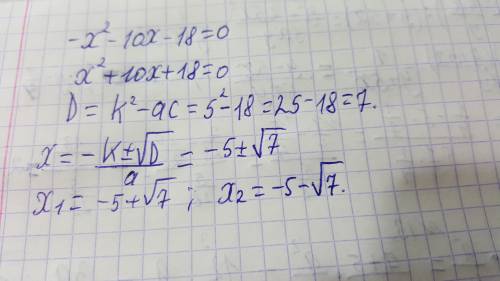 -x²-10x-18=0
x²+10x+18=0
D= k²-ac=5²-18=25-18=7.
x=-k±√D/a=-5±√7
x₁=-5+√7; x₂=-5-√7.